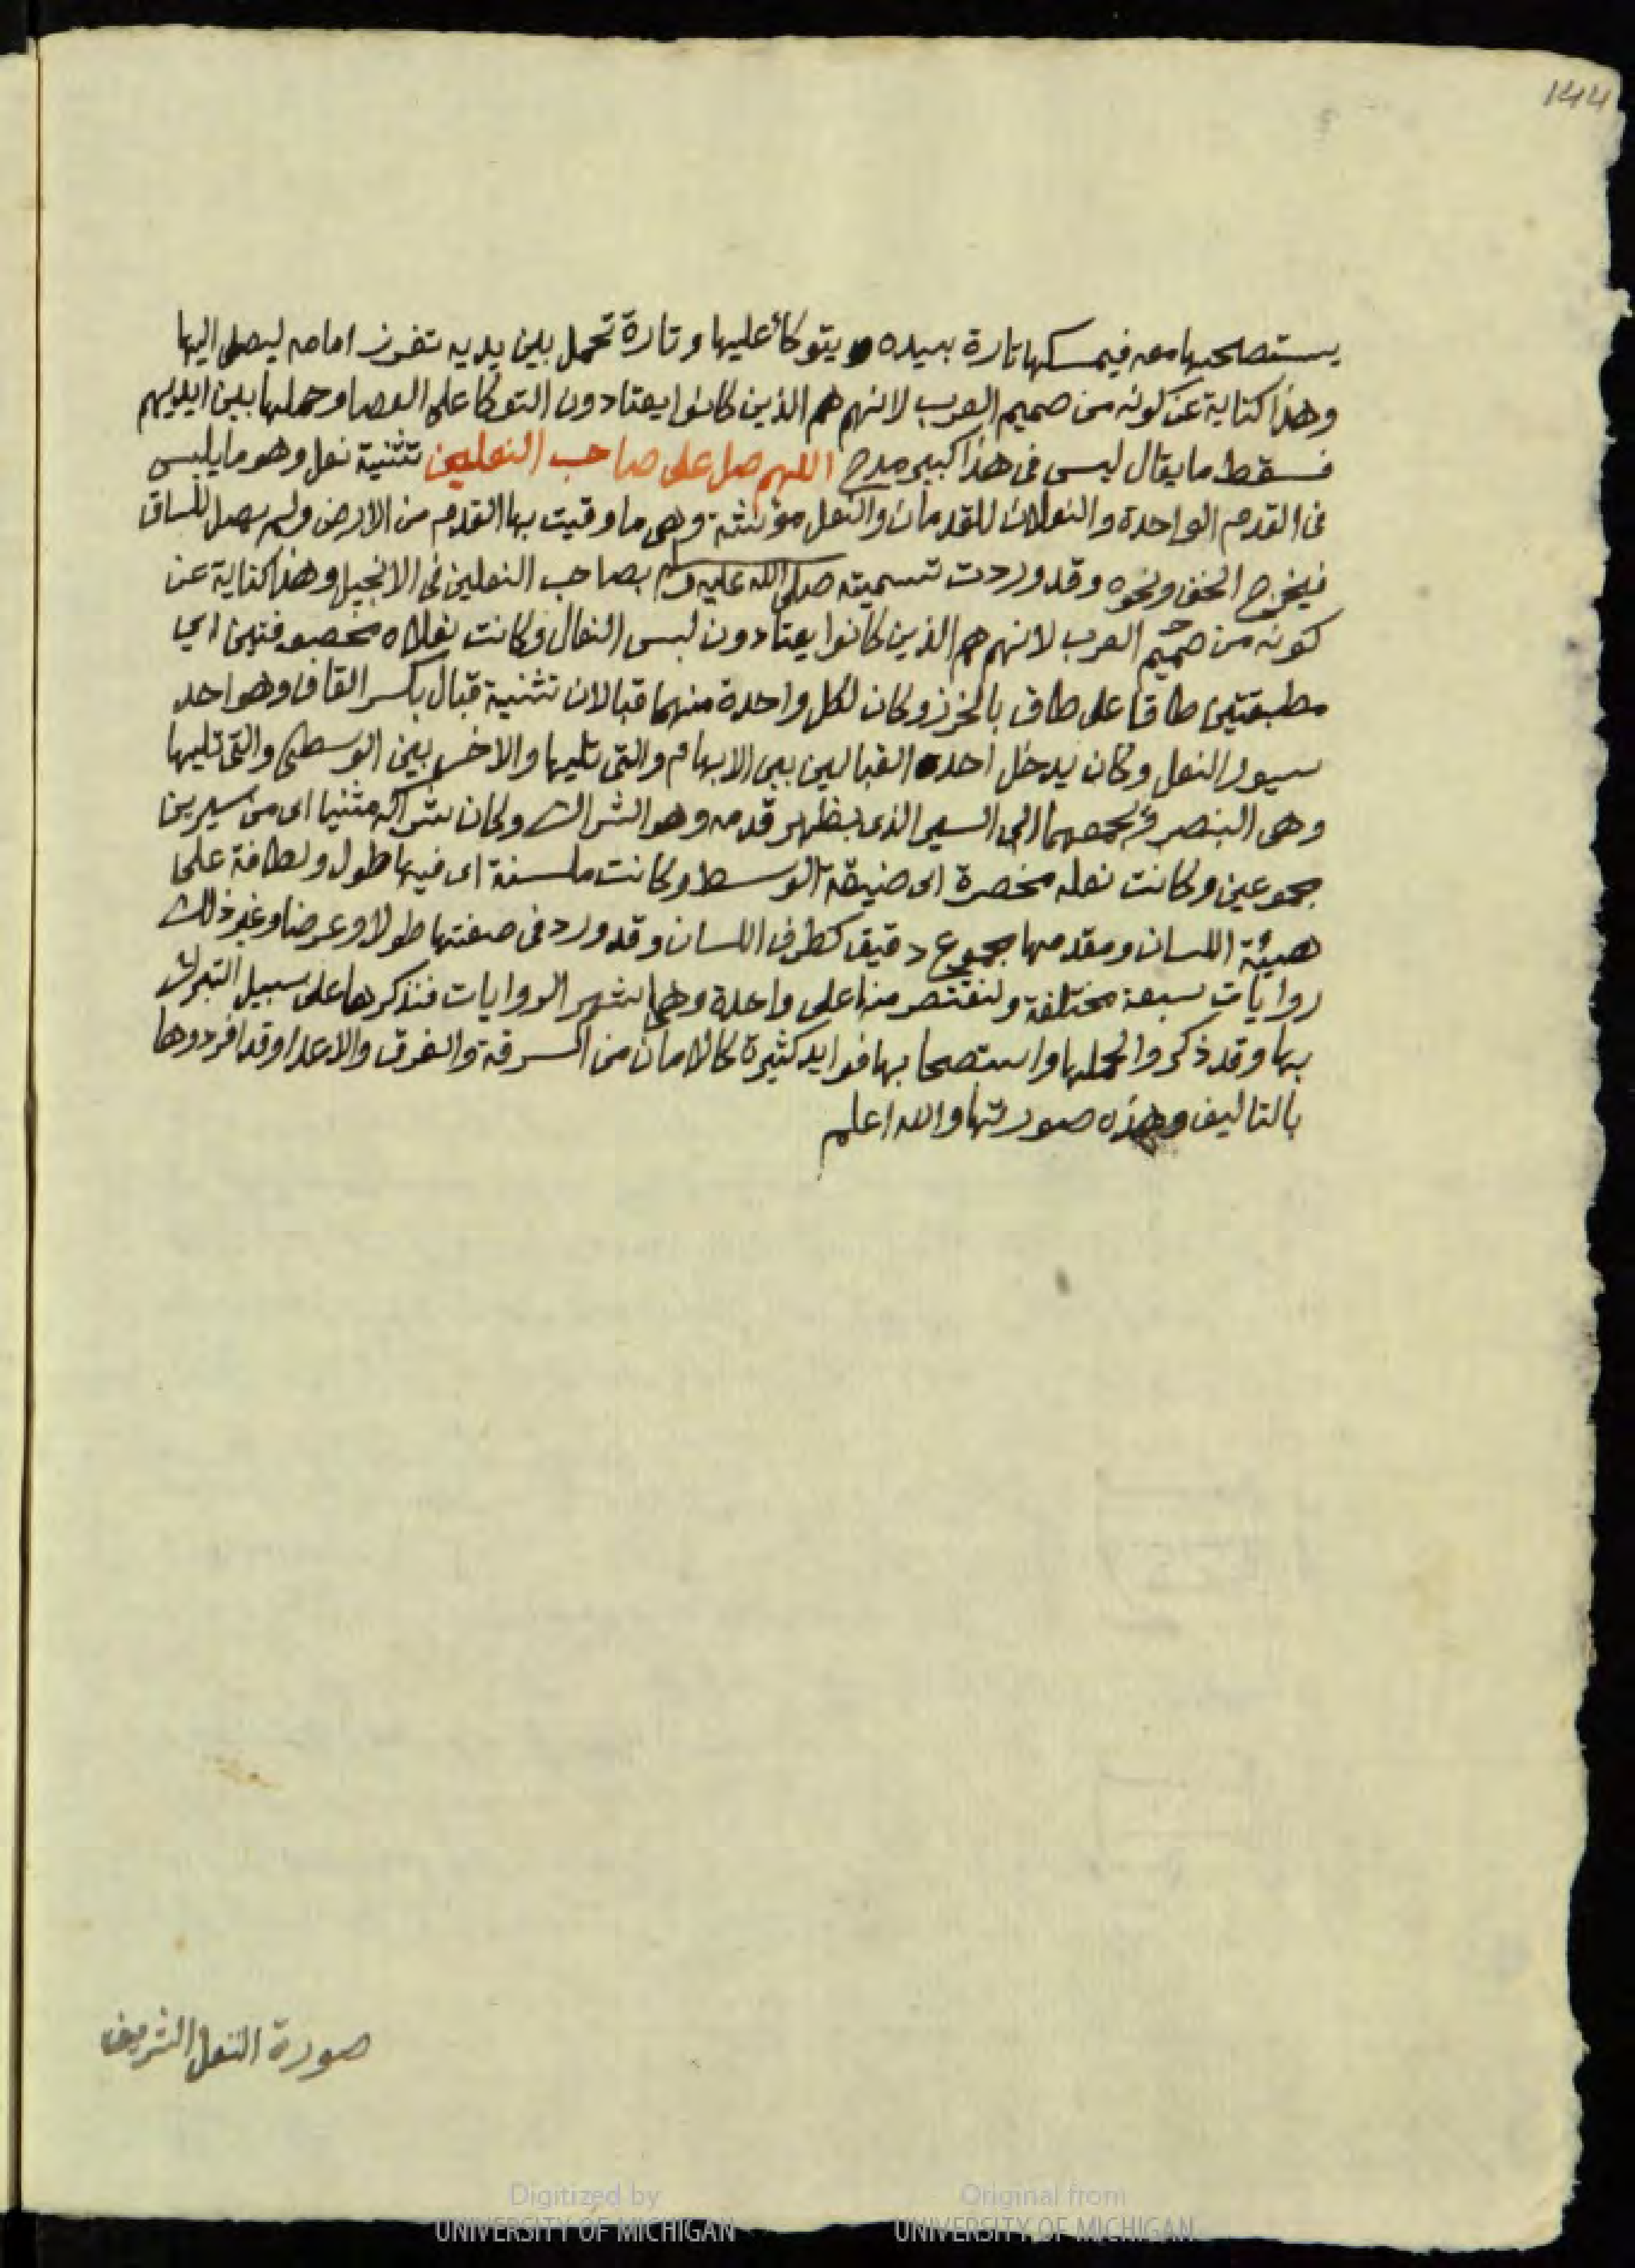 144
يستصحبها معه فيمسكها تارة بيده ويتوكأ عليها وتارة تحمل بين يديه تغرز امامه ليصلى اليها
وهذا كناية عن كونه من صميم العرب لانهم هم الذين كانوا يعتادون التوكا على العصا وحملها بين ايديهم
فسقط ما يقال ليس فى هذا كبير مدح اللهم صل على صاحب النعلين تثنية نعل وهو ما يلبس
فى القدم الواحدة والنعلان للقدمان والنعل مؤنثة وهى ما وقيت بها القدم من الارض ولم يصل للساق
فيخرج الخف ونحوه وقد وردت تسميته صلى الله عليه وسلم بصاحب النعلين فى الانجيل وهذا كناية عن
كونه من صميم العرب لانهم هم الذين كانوا يعتادون لبس النعال وكانت نعلاه مخصوفتين اي
مطبقتين طاقا على طاق بالخرز وكان لكل واحدة منهما قبالان تثنية قبال بكسر القاف وهو احد
سيور النعل وكان يدخل احد القبالين بين الابهام والتى تليها والاخر بين الوسطى والتى تليها
وهى البنصر ويجمعهما الى السير الذى بظهر قدمه وهو الشراك وكان شراكه مثنيا اى من سيرين
مجموعين وكانت نعله مخصرة اى ضيقة الوسط وكانت ملسنة اى فيها طول ولطافة على
هيئة اللسان ومقدمها مجموع دقيق كطرف اللسان وقد ورد فى صفتها طولا وعرضا وغير ذلك
روايات سبعة مختلفة ولنقتصر منها على واحدة وهى اشهر الروايات فنذكرها على سبيل التبرك
بها وقد ذكروا لحملها واستصحابها فوايد كثيرة كالامان من السرقة والغرق والاعدا وقد افردوها
بالتاليف وهذه صورتها والله اعلم
صورة النعل الشريف
Digitized by
UNIVERSITY OF MICHIGAN
Original from
UNIVERSITY OF MICHIGAN